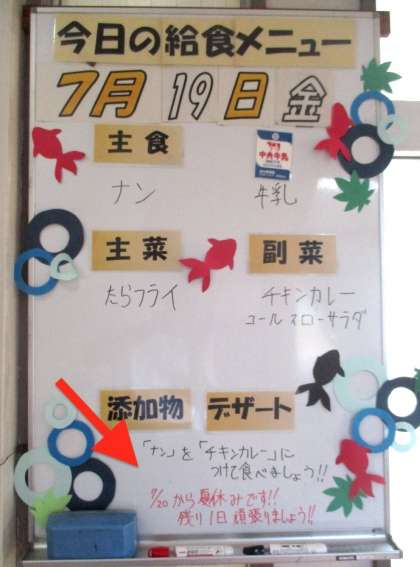 今日の給食メニュー
7月 19日 金
主食
中央牛乳
ナン 牛乳
主菜 副菜
たらフライ チキンカレー
コールスローサラダ
添加物 デザート
「ナン」を「チキンカレー」に
つけて食べましょう!!
7/20から夏休みです!!
残り1日頑張りましょう!!